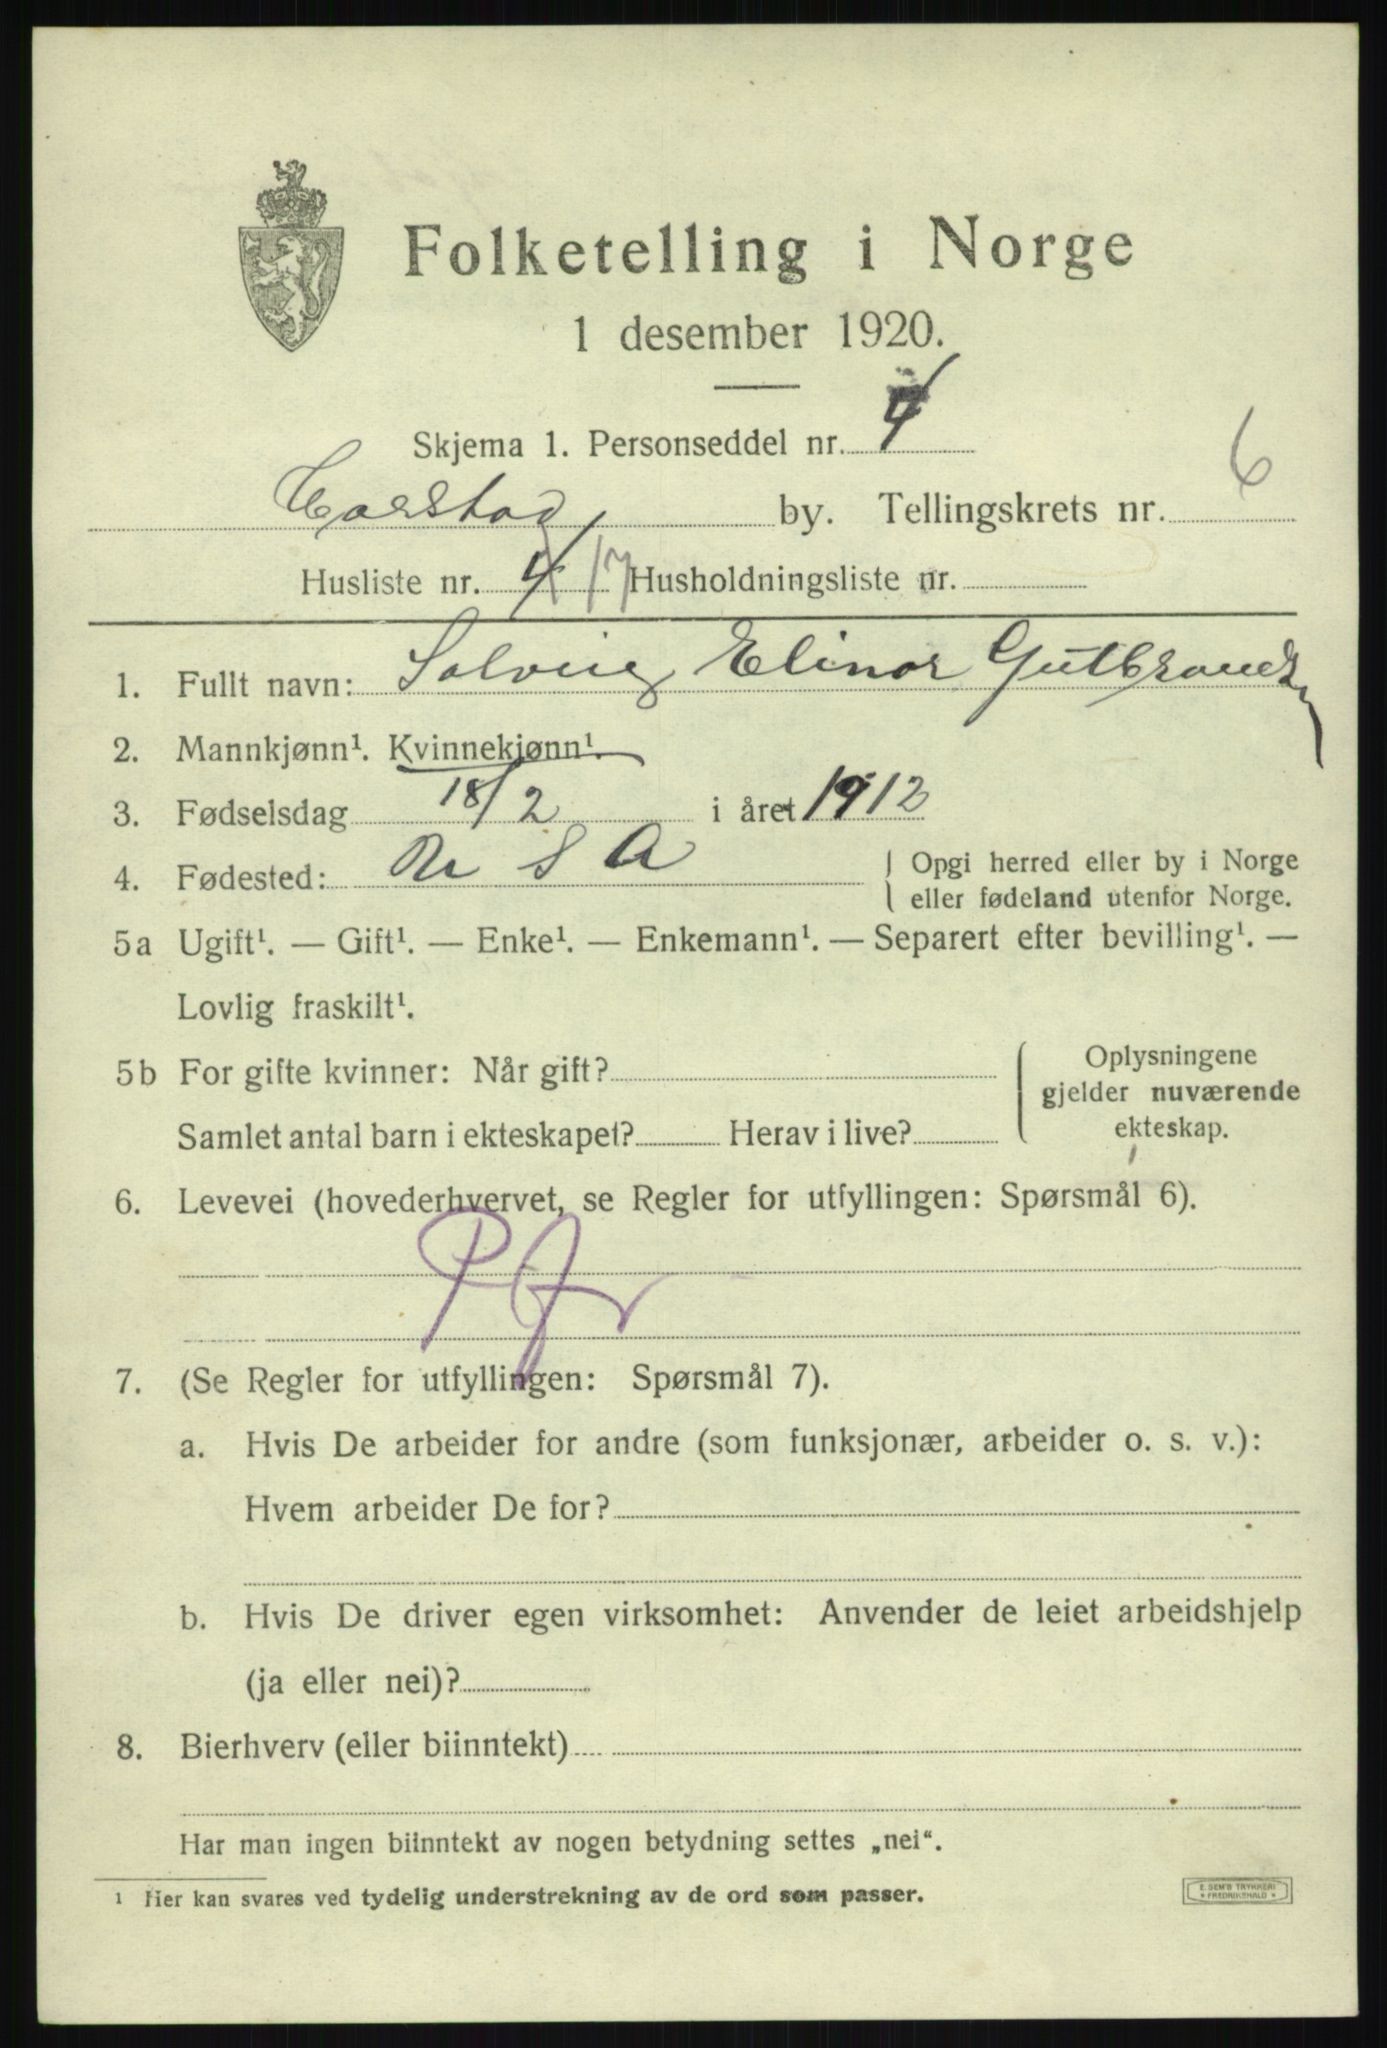 Folketelling i Norge
1 desember 1920.
Skjema 1. Personseddel nr. 4
Harstad by. Tellingskrets nr. 6
Husliste nr. 4 17 Husholdningsliste nr.
1. Fullt navn: Solveig Elinor Gutbrands
2. Mannkjønn¹. Kvinnekjønn¹.
3. Fødselsdag 18/2 i året 1912
4. Fødested: U S A
Opgi herred eller by i Norge
eller fødeland utenfor Norge.
5a Ugift¹. — Gift¹. — Enke¹. — Enkemann¹. — Separert efter bevilling¹. —
Lovlig fraskilt¹.
5b For gifte kvinner: Når gift?
Samlet antal barn i ekteskapet? Herav i live?
Oplysningene
gjelder nuværende
ekteskap.
6. Levevei (hovederhvervet, se Regler for utfyllingen: Spørsmål 6).
7. (Se Regler for utfyllingen: Spørsmål 7).
a. Hvis De arbeider for andre (som funksjonær, arbeider o. s. v.):
Hvem arbeider De for?
b. Hvis De driver egen virksomhet: Anvender de leiet arbeidshjelp
(ja eller nei)?
8. Bierhverv (eller biinntekt)
Har man ingen biinntekt av nogen betydning settes „nei“.
¹ Her kan svares ved tydelig understrekning av de ord som passer.
E. SEM'S TRYKKERI
* FREDRIKSHALD *